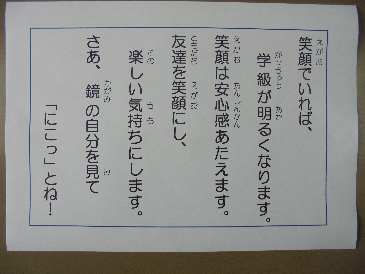 笑顔でいれば、
学級が明るくなります。
笑顔は安心感あたえます。
友達を笑顔にし、
楽しい気持ちにします。
さあ、鏡の自分を見て
「にこっ」とね!